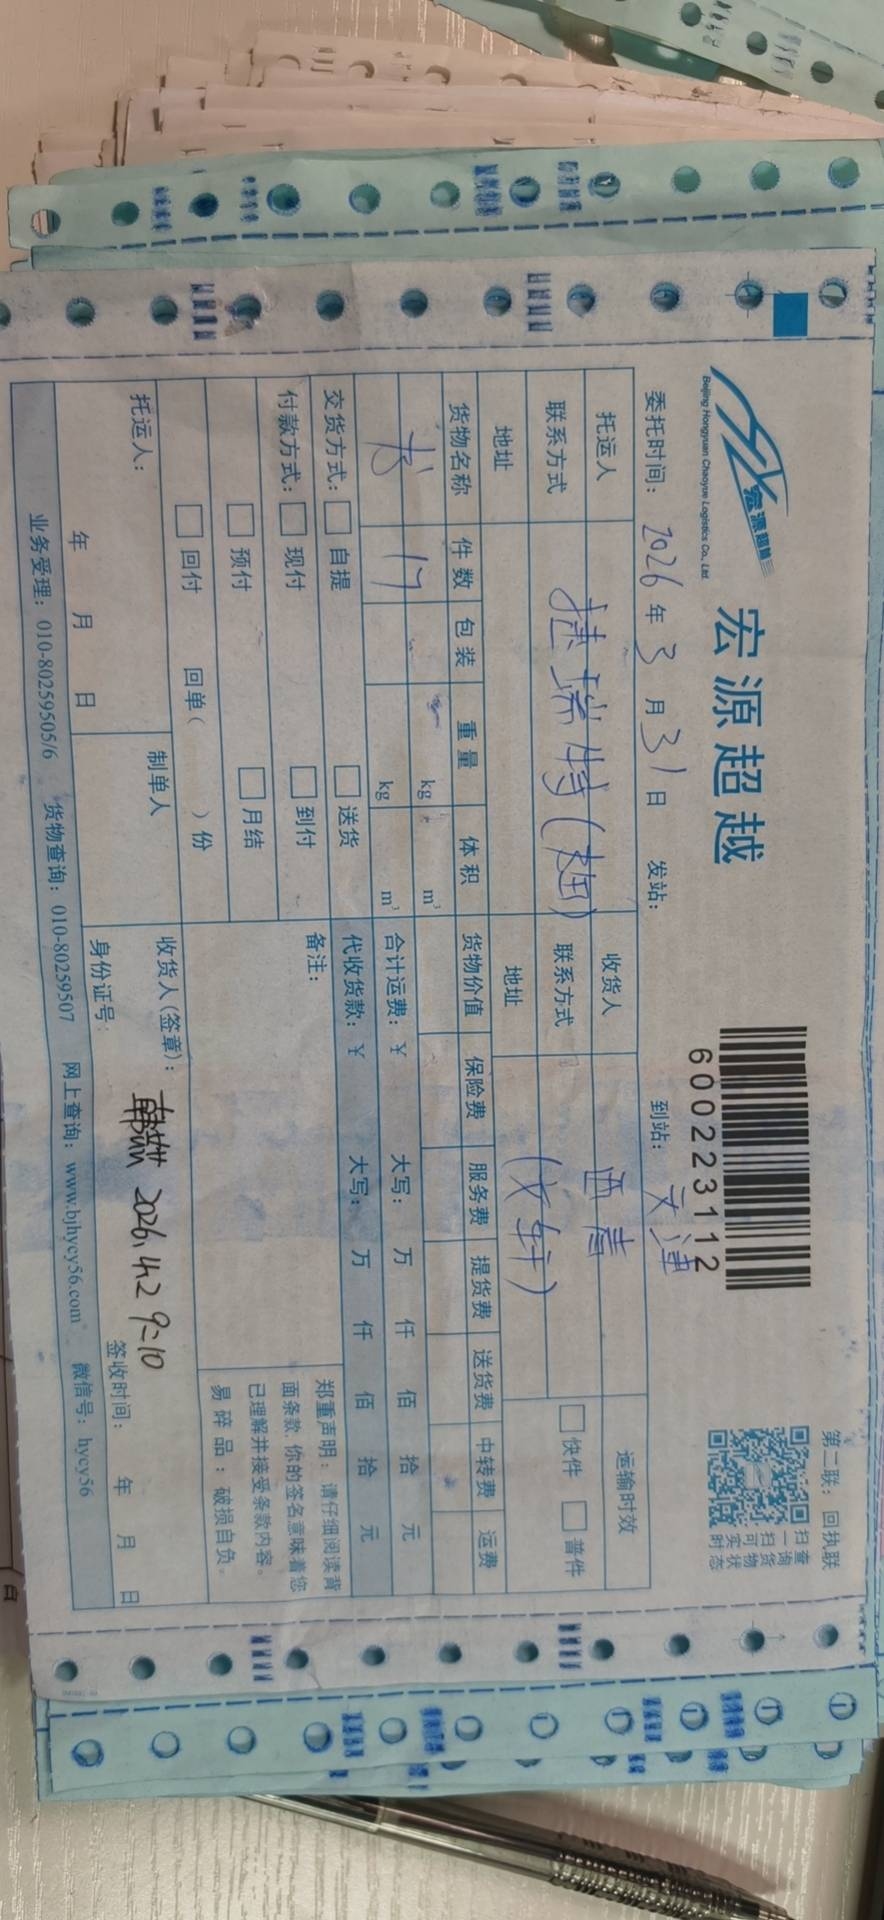 宏源超越
Beijing Hongyuan Chaoyue Logistics Co., Ltd.
宏源超越
60022231 12
第二联：回执联
扫一扫可实时
查询货物状态
委托时间：2026年3月31日 发站： 到站：天津
托运人 捷瑞特(赵) 收货人 西青(文轩) 运输时效
联系方式 联系方式 快件 普件
地址 地址
货物名称 件数 包装 重量 体积 货物价值 保险费 服务费 提货费 送货费 中转费 运费
kg m³
书 17 kg m³ 合计运费：￥ 大写： 万 仟 佰 拾 元
代收货款：￥ 大写： 万 仟 佰 拾 元
交货方式： 自提 送货
付款方式： 现付 到付
预付 月结
回付 回单（ ）份
备注：
郑重声明：请仔细阅读背
面条款，你的签名意味着您
已理解并接受条款内容。
易碎品：破损自负。
托运人： 年 月 日
制单人
收货人(签章)： 2026.4.2 9:10
身份证号： 签收时间： 年 月 日
业务受理：010-80259505/6 货物查询：010-80259507 网上查询：www.bjhycy56.com 微信号：hycy56